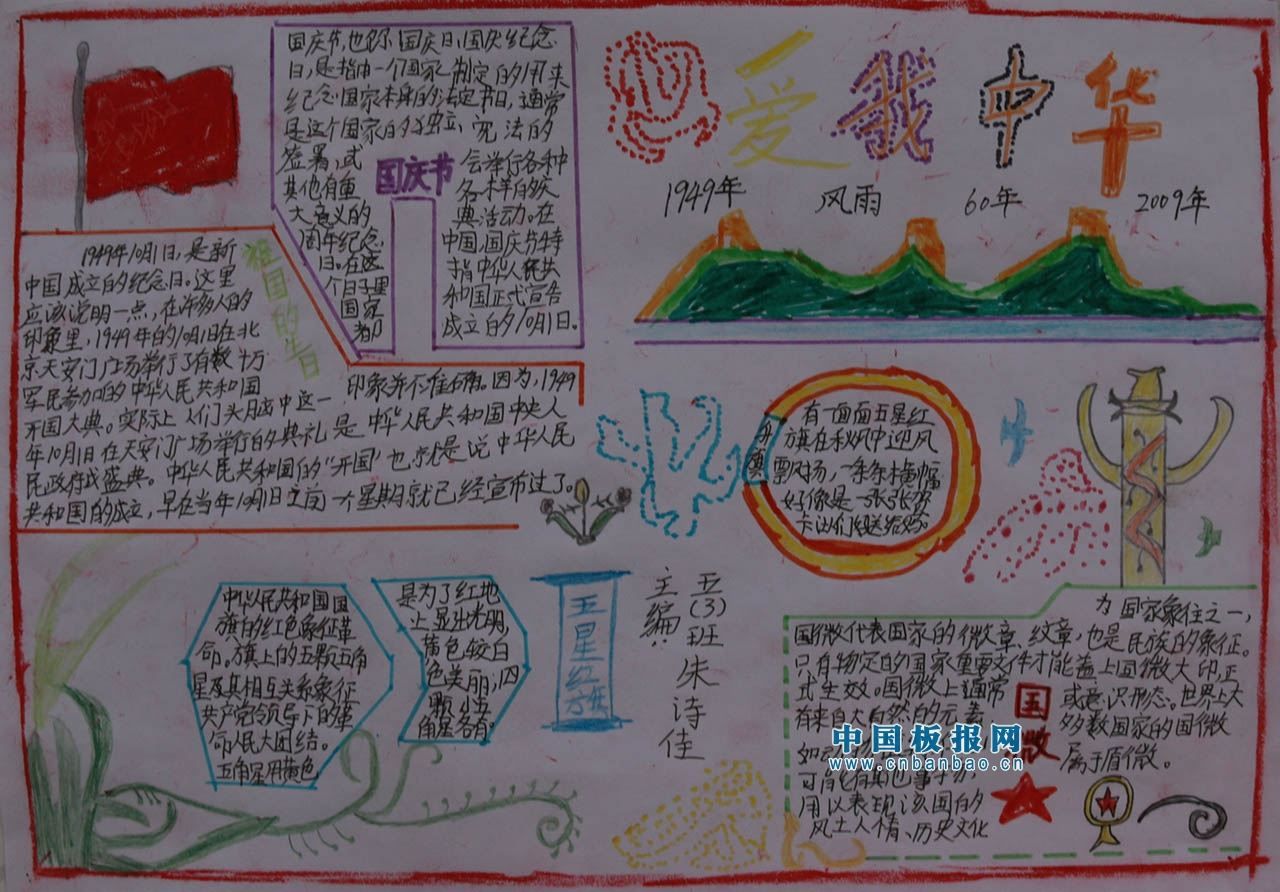 国庆节,也称国庆日、国庆纪念
日,是指由一个国家制定的用来
纪念国家本身的法定节日,通常
是这个国家的独立、宪法的
签署,或
其他有重
大意义的
周年纪念
日。在这
个日子里
国家
都
国庆节
会举行各种
各样的庆
典活动。在
中国,国庆节特
指中华人民共
和国正式宣告
成立的10月1日。
爱我中华
1949年 风雨 60年 2009年
祖国的生日
1949年10月1日,是新
中国成立的纪念日。这里
应该说明一点,在许多人的
印象里,1949年的10月1日在北
京天安门广场举行了有数十万
军民参加的中华人民共和国
开国大典。实际上人们头脑中这一
印象并不准确。因为,1949
年10月1日在天安门广场举行的典礼是中华人民共和国中央人
民政府成盛典。中华人民共和国的“开国”也就是说中华人民
共和国的成立,早在当年10月1日之前一个星期就已经宣布过了。
有一面面五星红
旗在秋风中迎风
飘扬,一条条横幅
好像是一张张贺
卡
中华人民共和国国
旗的红色象征革
命,旗上的五颗五角
星及其相互关系象征
共产党领导下的革
命人民大团结。
五角星用黄色
是为了红地
上显出光明,
黄色较白
色美丽,四
颗小五
角星各有
五星红旗
五(3)班朱诗佳
主编:
国徽
国徽代表国家的徽章、纹章,
为国家象征之一,
也是民族的象征。
只有特定的国家重要文件才能盖上国徽大印正
式生效。国徽上通常
有来自大自然的元素
可能有其他事物,
用以表现该国的
风土人情、历史文化
或意识形态。世界上大
多数国家的国徽
属于盾徽。
中国板报网
www.cnbanbao.cn